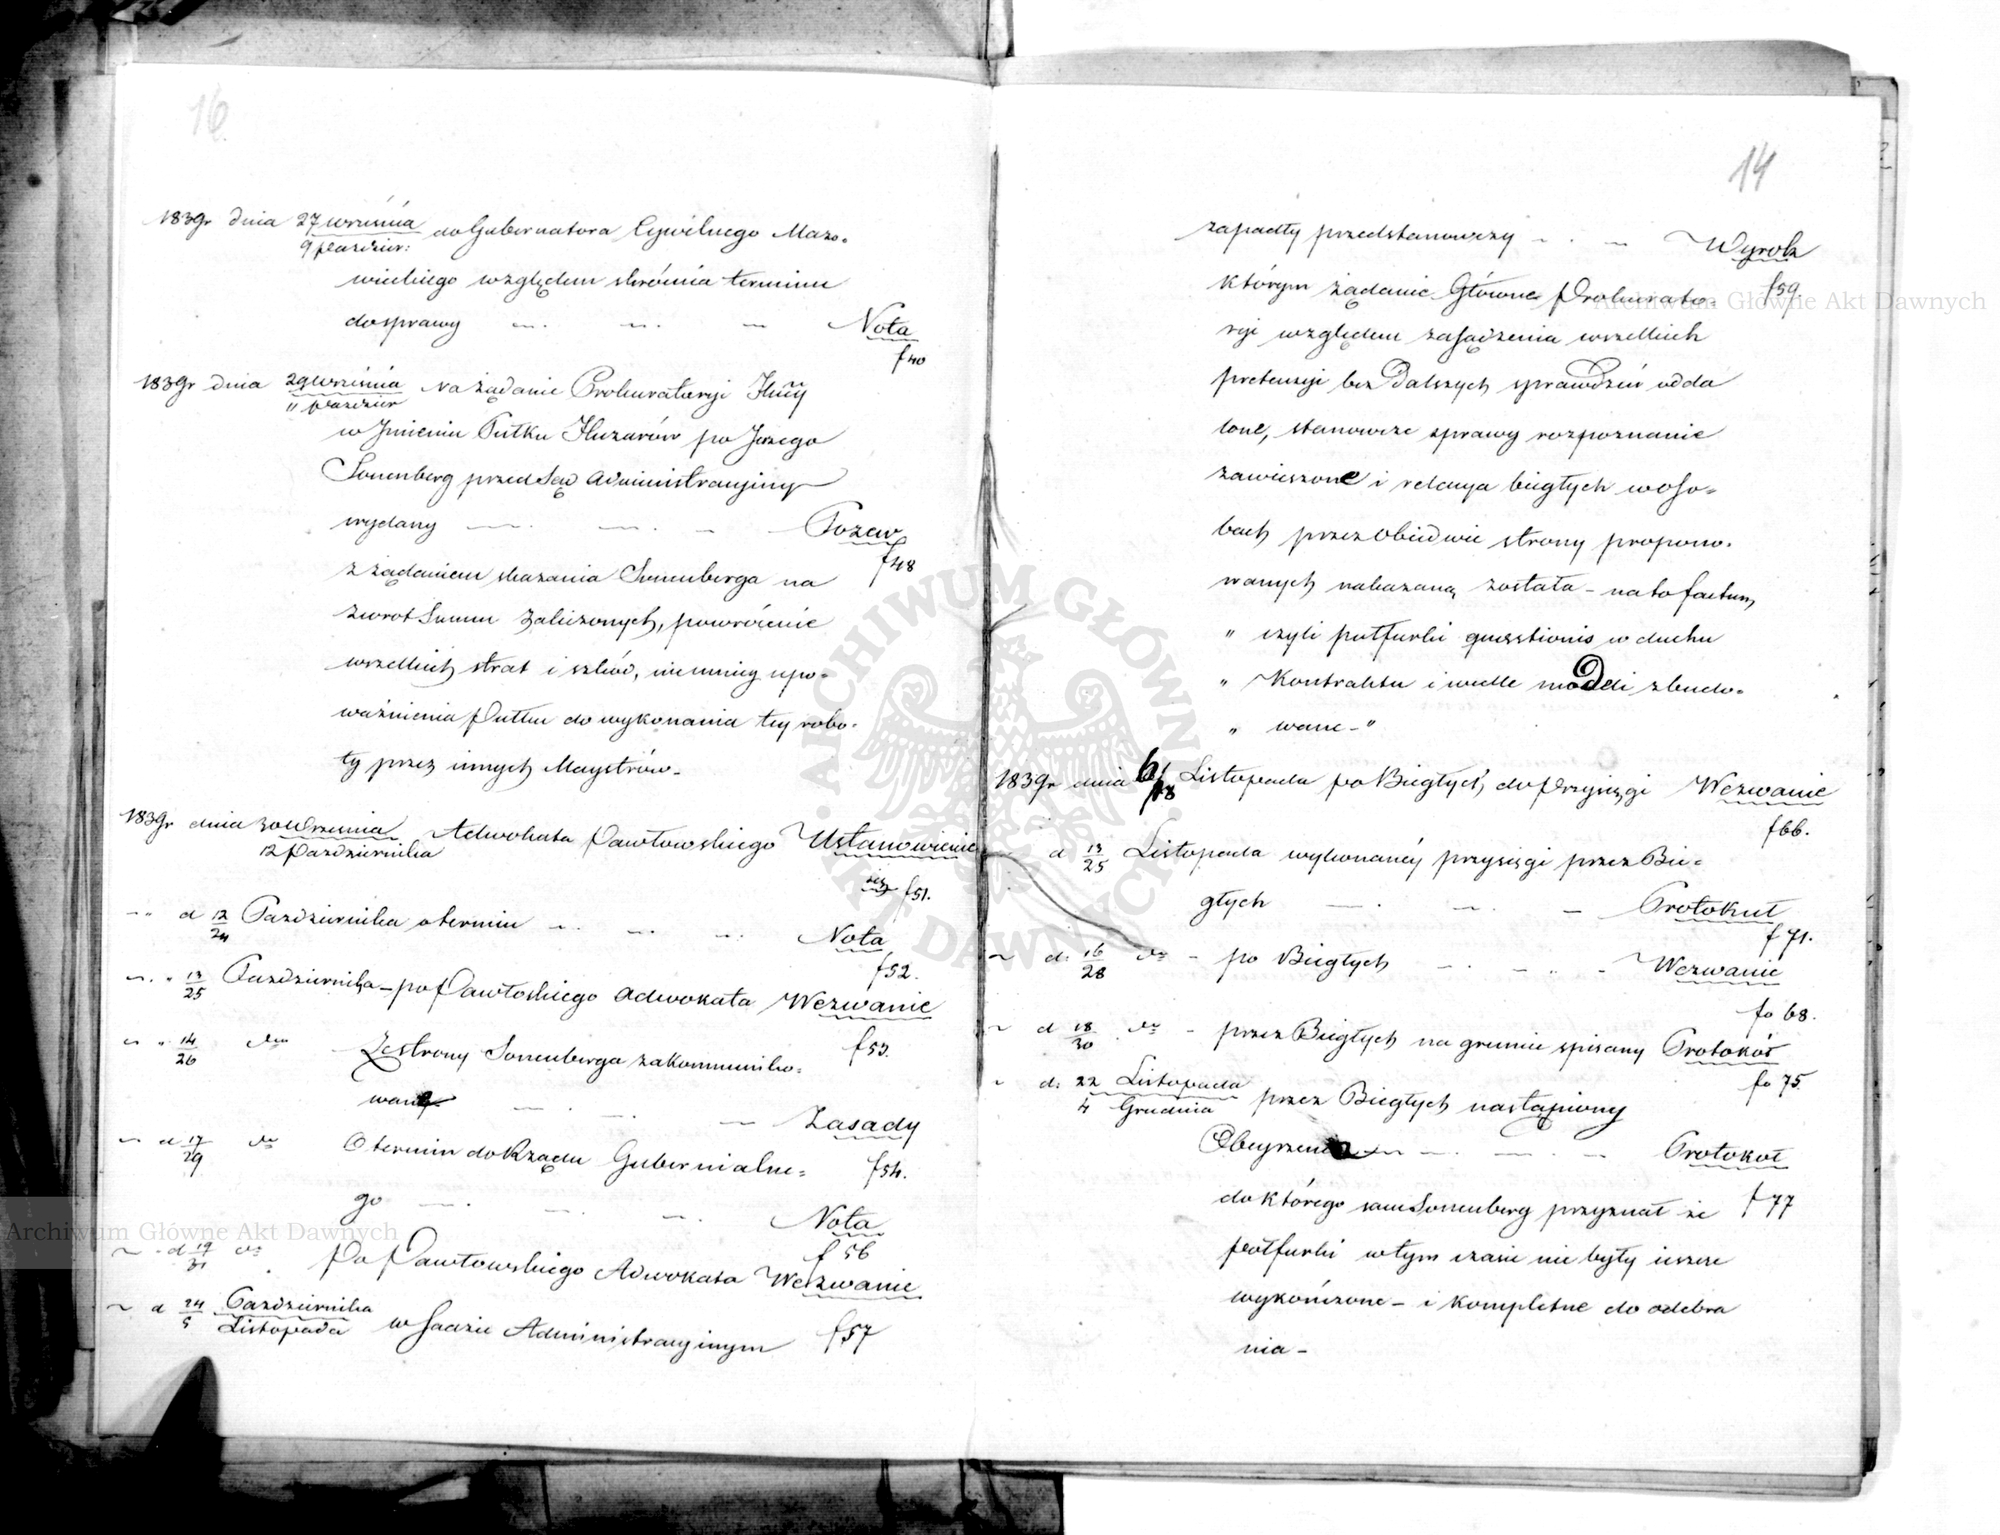 16
1839r dnia 27 września do Gubernatora Cywilnego Mazo=
9 Paździer:
wieckiego względem skrócenia terminu
do sprawy — Nota
f 40
1839r dnia 29 września na żądanie Prokuratoryi
11 Paździer
w Jmieniu Pułku Huzarów po Jerzego
Sonenberg przed Sąd Administracyiny
wydany — Pozew
z żądaniem skazania Sonenberga na f 48
zwrot Summ zaliczonych, powrócenie
wszelkich strat i szkód, niemniey upo=
ważnienia Pułku do wykonania tey robo=
ty przez innych Maystrów.
1839r dnia 30 Września Adwokata Pawłowskiego Ustanowienie
12 Października
się f 51.
d 12/24 Października o termin — Nota
f 52.
" 13/25 Października — po Pawłoskiego Adwokata Wezwanie
" 14/26 dto Ze strony Sonenberga zakommuniko= f 53.
wane — Zasady
d 17/29 dto O termin do Rządu Gubernialne= f 54.
go — Nota
f 56
d 19/31 dto Po Pawłowskiego Adwokata Wezwanie
d 24/5 Października/Listopada w Sądzie Administracyinym f 57
14
zapadły przedstanowczy — Wyrok
którym żądanie Główne Prokurato= f 59
ryi względem zasądzenia wszelkich
pretensyi bez dalszych sprawdzeń odda
lone, stanowcze sprawy rozpoznanie
zawieszone i relacya biegłych w oso=
bach przez obiedwie strony propono=
wanych nakazaną została — na to factum
" czyli półfurki quaestionis w duchu
" Kontraktu i wedle modeli zbudo=
" wane — "
1839r dnia 6/18 Listopada po Biegłych do przysięgi Wezwanie
f 66.
d 13/25 Listopada wykonaney przysięgi przez Bie=
głych — Protokuł
f 71.
d. 16/28 dto — po Biegłych — Wezwanie
fo 68.
d 18/30 dto — przez Biegłych na gruncie spisany Protokół
fo 75.
d. 22 Listopada/4 Grudnia przez Biegłych nastąpiony
Obeyrzenia — Protokół
do którego sam Sonenberg przyznał że f 77
półfurki w tym czasie nie były ieszcze
wykończone — i kompletne do odebra
nia —
Archiwum Główne Akt Dawnych
Archiwum Główne Akt Dawnych
ARCHIWUM GŁÓWNE AKT DAWNYCH